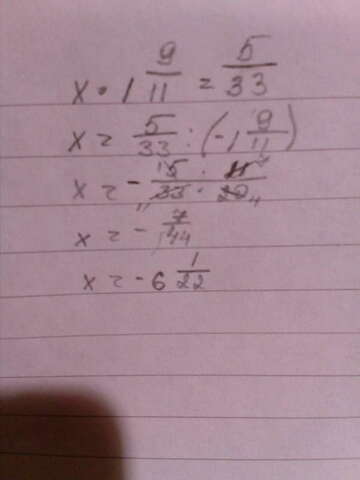 x • 1 9/11 = 5/33
x = 5/33 : (-1 9/11)
x = - 5/33 · 11/20
x = - 7/44
x = -6 1/22